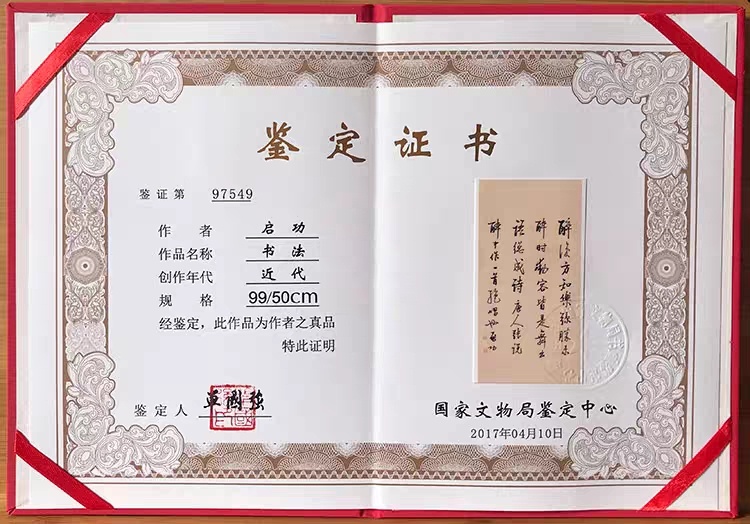 鉴定证书
鉴证第 97549
作者 启功
作品名称 书法
创作年代 近代
规格 99/50cm
经鉴定，此作品为作者之真品
特此证明
鉴定人 单國强
醉后方知樂弥勝未
醉时動容皆是舞出
語總成詩唐人張説
醉中作一首
启功
国家文物局鉴定中心
2017年04月10日